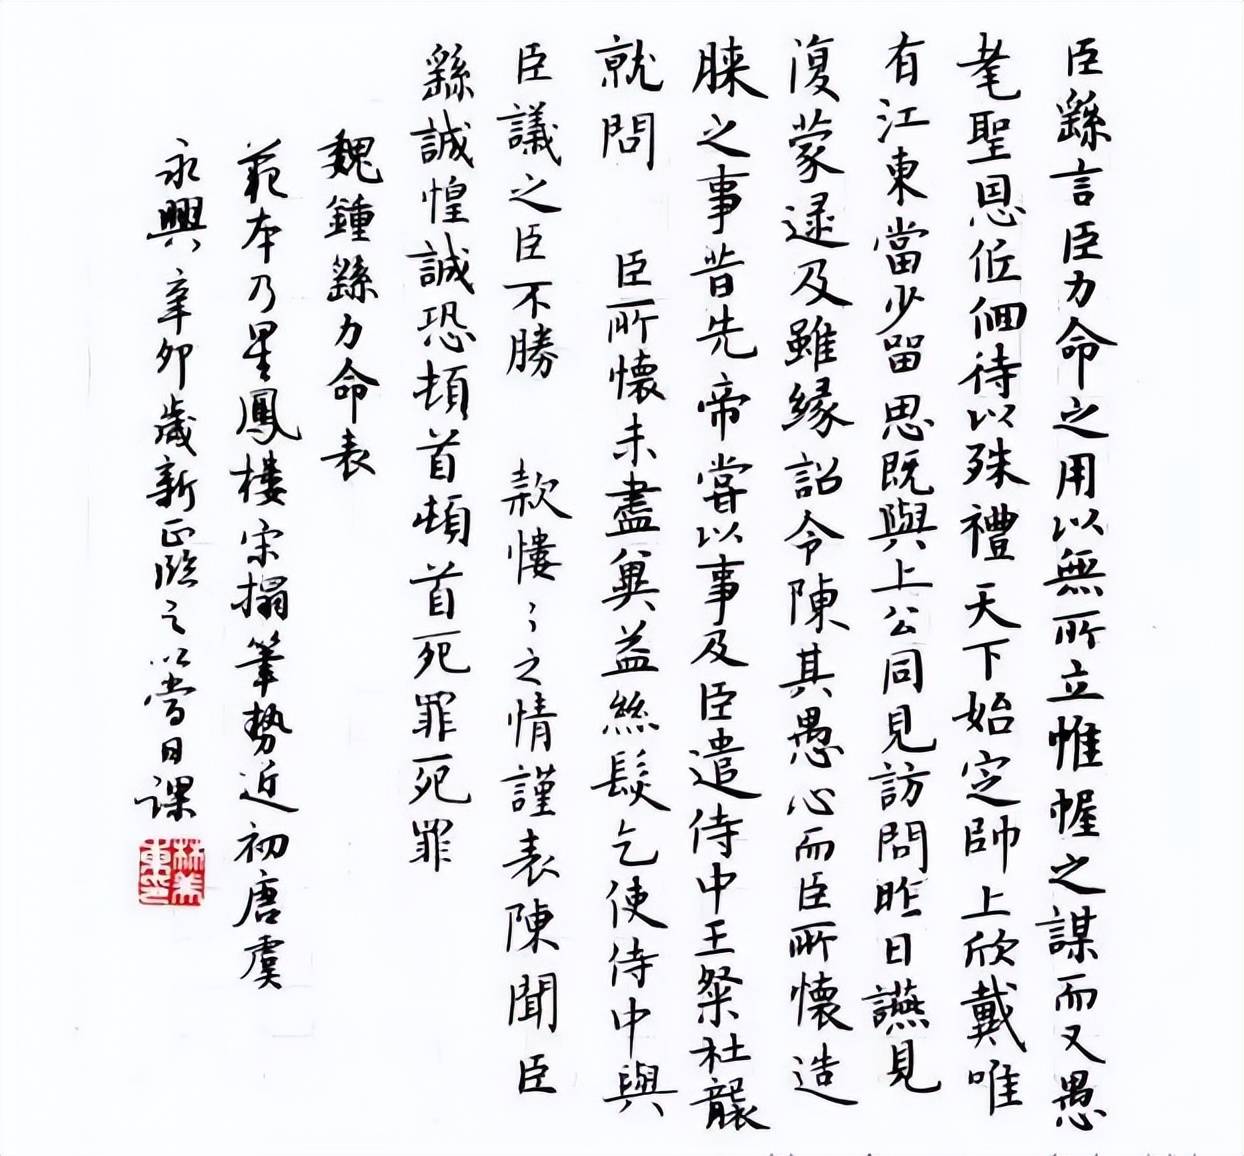 臣繇言臣力命之用以無所立惟幄之謀而又愚
耄聖恩低佪待以殊禮天下始定帥上欣戴唯
有江東當少留思既與上公同見訪問昨日讌見
復蒙逮及雖緣詔令陳其愚心而臣所懷造
膝之事昔先帝嘗以事及臣遣侍中王粲杜襲
就問 臣所懷未盡奚益絲髮乞使侍中與
臣議之臣不勝 款慺〻之情謹表陳聞臣
繇誠惶誠恐頓首頓首死罪死罪
魏鍾繇力命表
範本乃星鳳樓宋搨筆勢近初唐虞
永興辛卯歲新正臨之以當日課